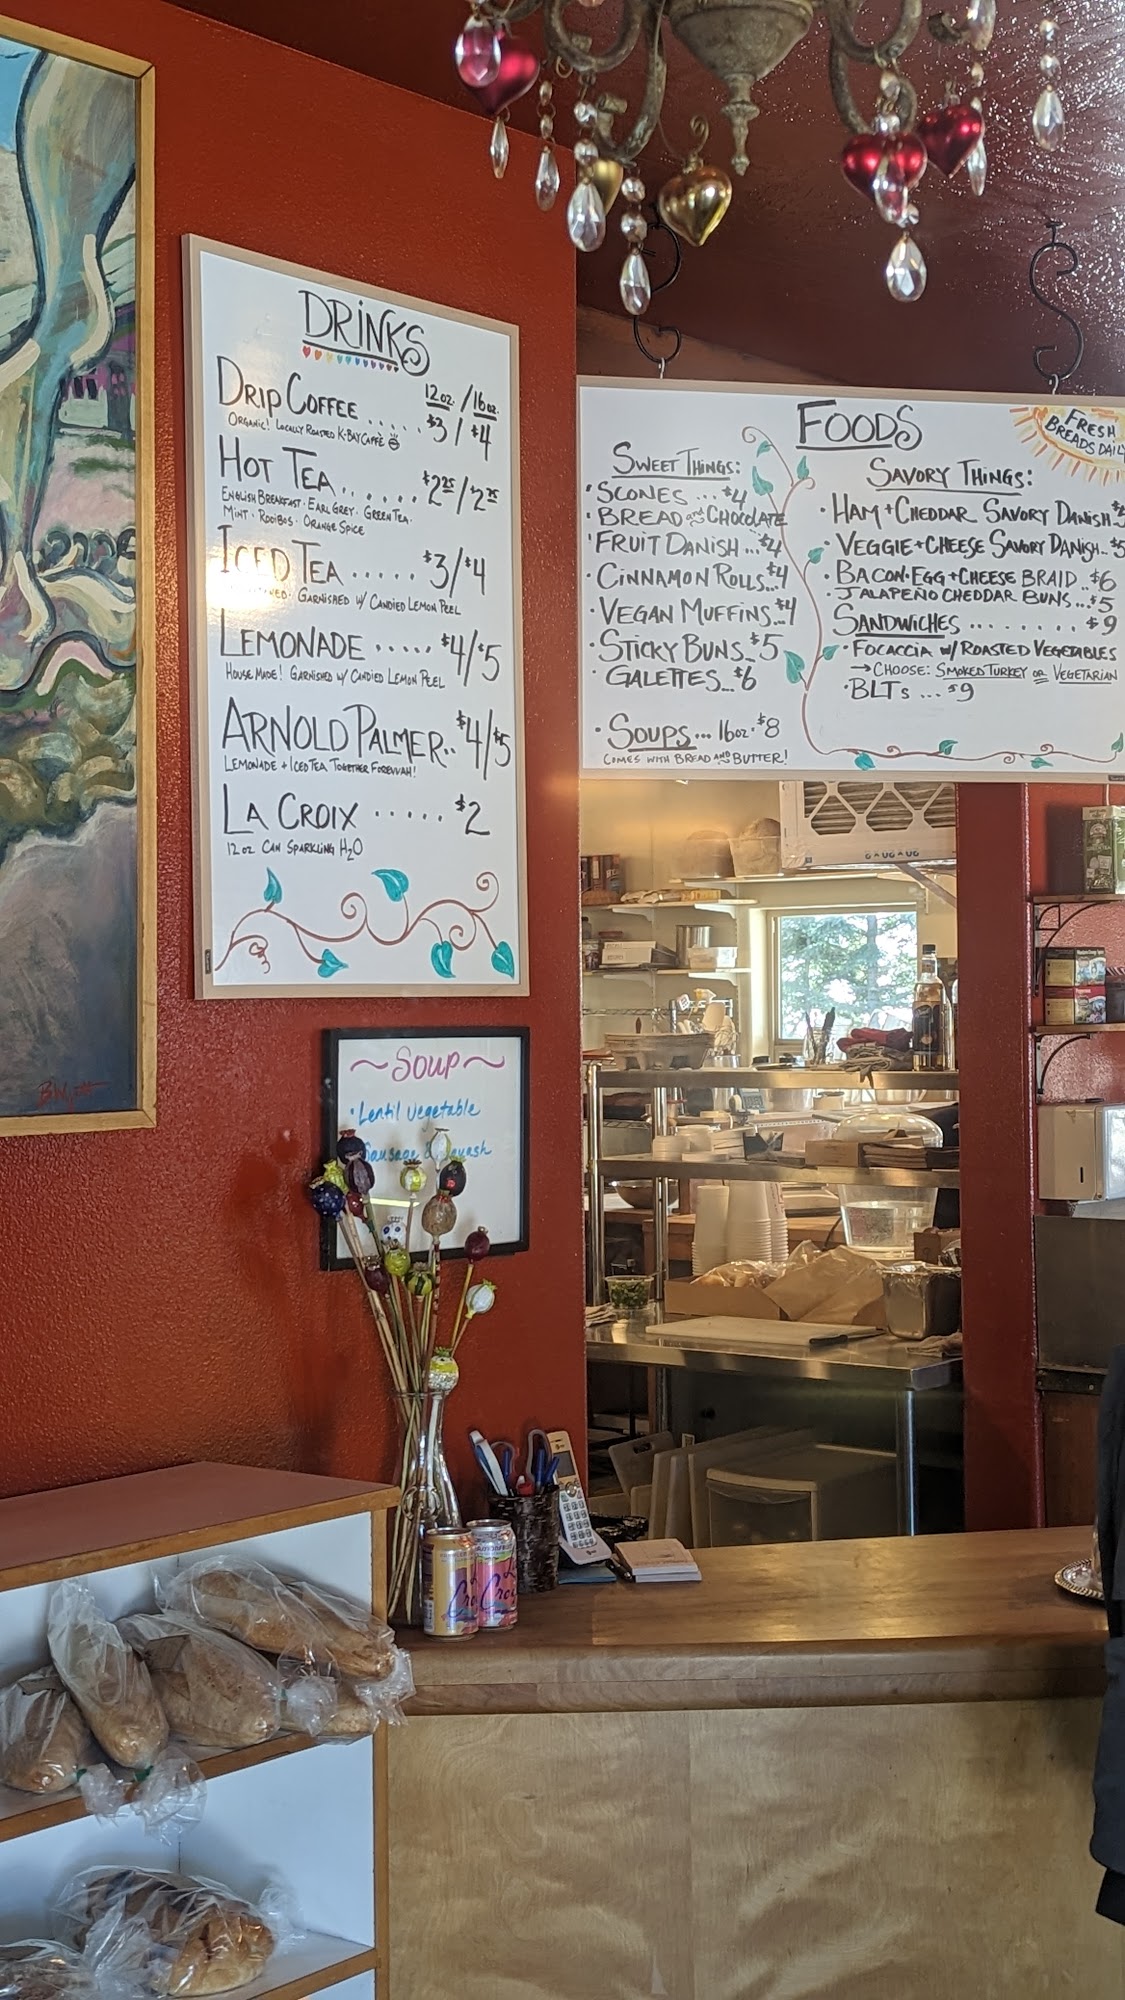 DRINKS
12 oz. / 16 oz.
DRIP COFFEE ...... $3 / $4
ORGANIC! LOCALLY ROASTED K-BAY CAFFÉ
HOT TEA....... $2.25 / $2.75
ENGLISH BREAKFAST · EARL GREY · GREEN TEA ·
MINT · ROOIBOS · ORANGE SPICE
ICED TEA ..... $3/$4
GARNISHED W/ CANDIED LEMON PEEL
LEMONADE ..... $4/$5
HOUSE MADE! GARNISHED W/ CANDIED LEMON PEEL
ARNOLD PALMER.. $4/$5
LEMONADE + ICED TEA TOGETHER FOREVVAH!
LA CROIX ..... $2
12 OZ CAN SPARKLING H2O
FOODS
FRESH
BREADS DAILY
SWEET THINGS:
· SCONES ... $4
· BREAD AND CHOCOLATE
· FRUIT DANISH ... $4
· CINNAMON ROLLS... $4
· VEGAN MUFFINS... $4
· STICKY BUNS... $5
· GALETTES... $6
· SOUPS... 16 oz. $8
COMES WITH BREAD AND BUTTER!
SAVORY THINGS:
· HAM + CHEDDAR SAVORY DANISH
· VEGGIE + CHEESE SAVORY DANISH... $5
· BACON · EGG + CHEESE BRAID .. $6
· JALAPEÑO CHEDDAR BUNS ... $5
SANDWICHES ........ $9
· FOCACCIA W/ ROASTED VEGETABLES
→ CHOOSE: SMOKED TURKEY OR VEGETARIAN
· BLTs ... $9
~SOUP~
· Lentil vegetable
Sausage
La Croix